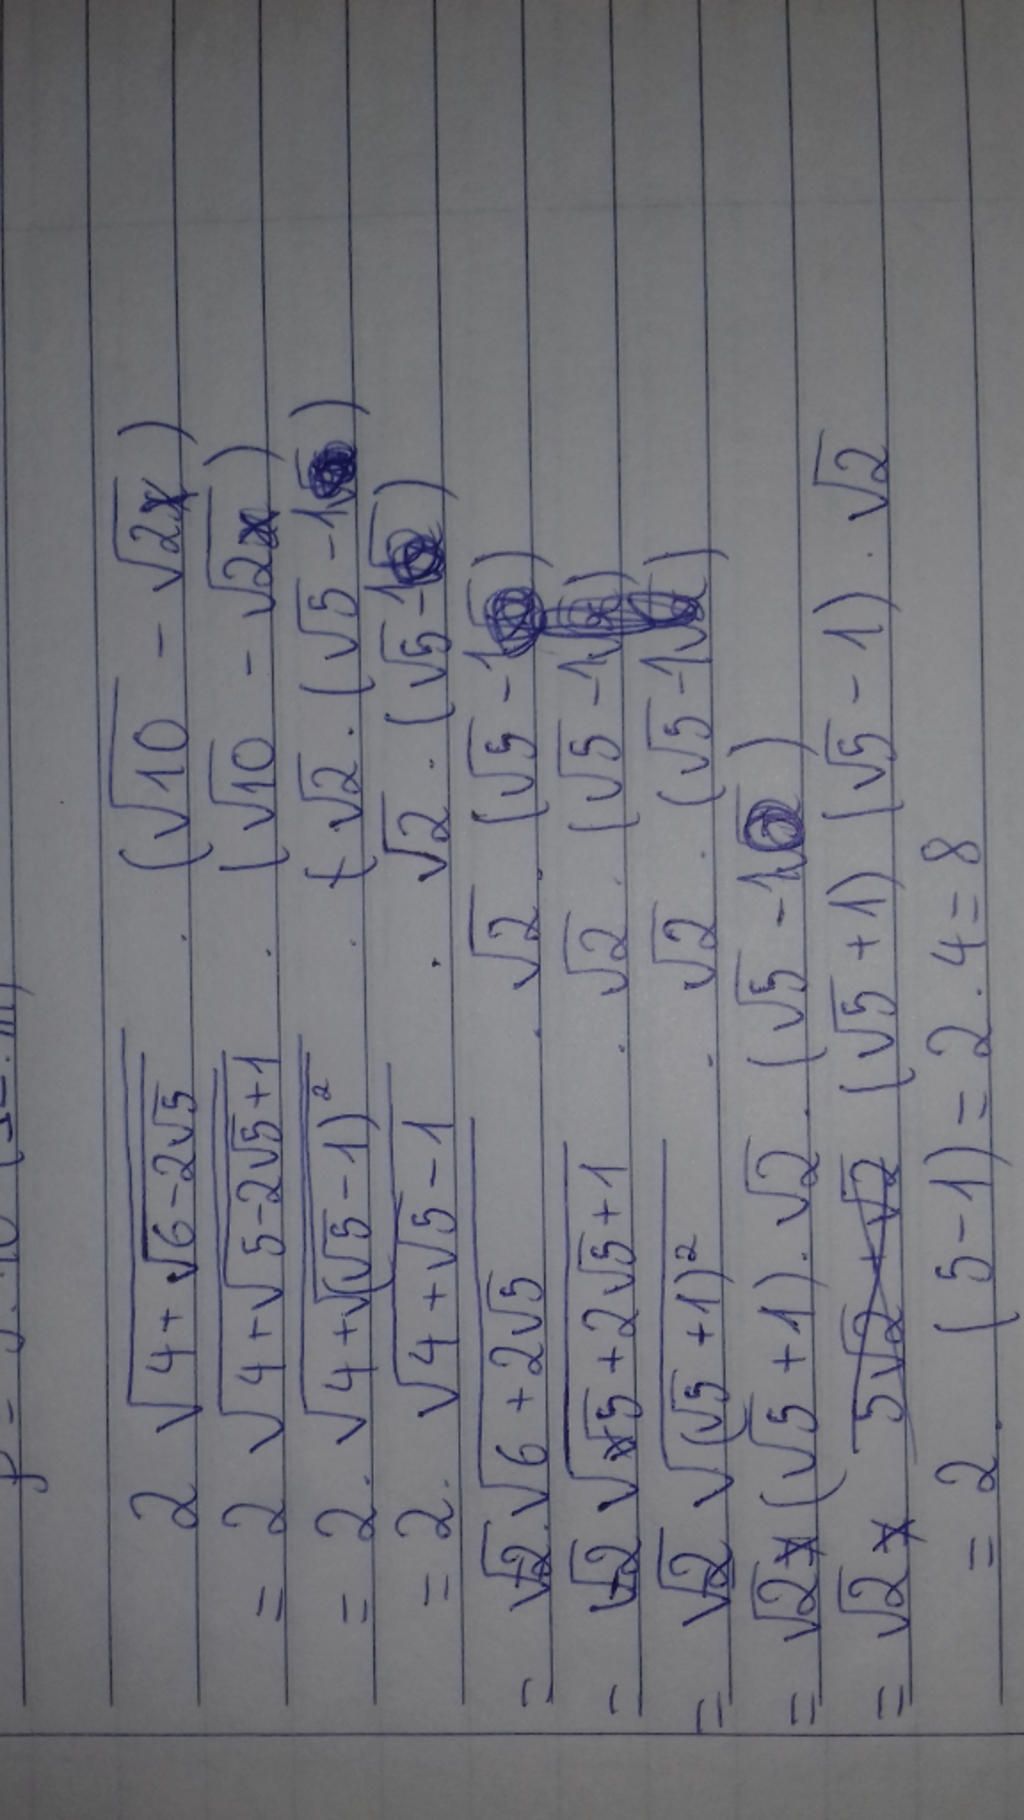 2 √(4+√(6-2√5)) . (√10 - √2)
= 2 √(4+√(5-2√5+1)) . (√10 - √2)
= 2. √(4+√((√5-1)²)) . (√2.(√5-1)
= 2. √(4+√5-1) . √2.(√5-1)
= √2.√(6+2√5) . √2.(√5-1)
= √2 √(5+2√5+1) . √2.(√5-1)
= √2 √((√5+1)²) . √2.(√5-1)
= √2 (√5+1).√2.(√5-1)
= √2 (√5+1)(√5-1).√2
= 2.(5-1)=2.4=8